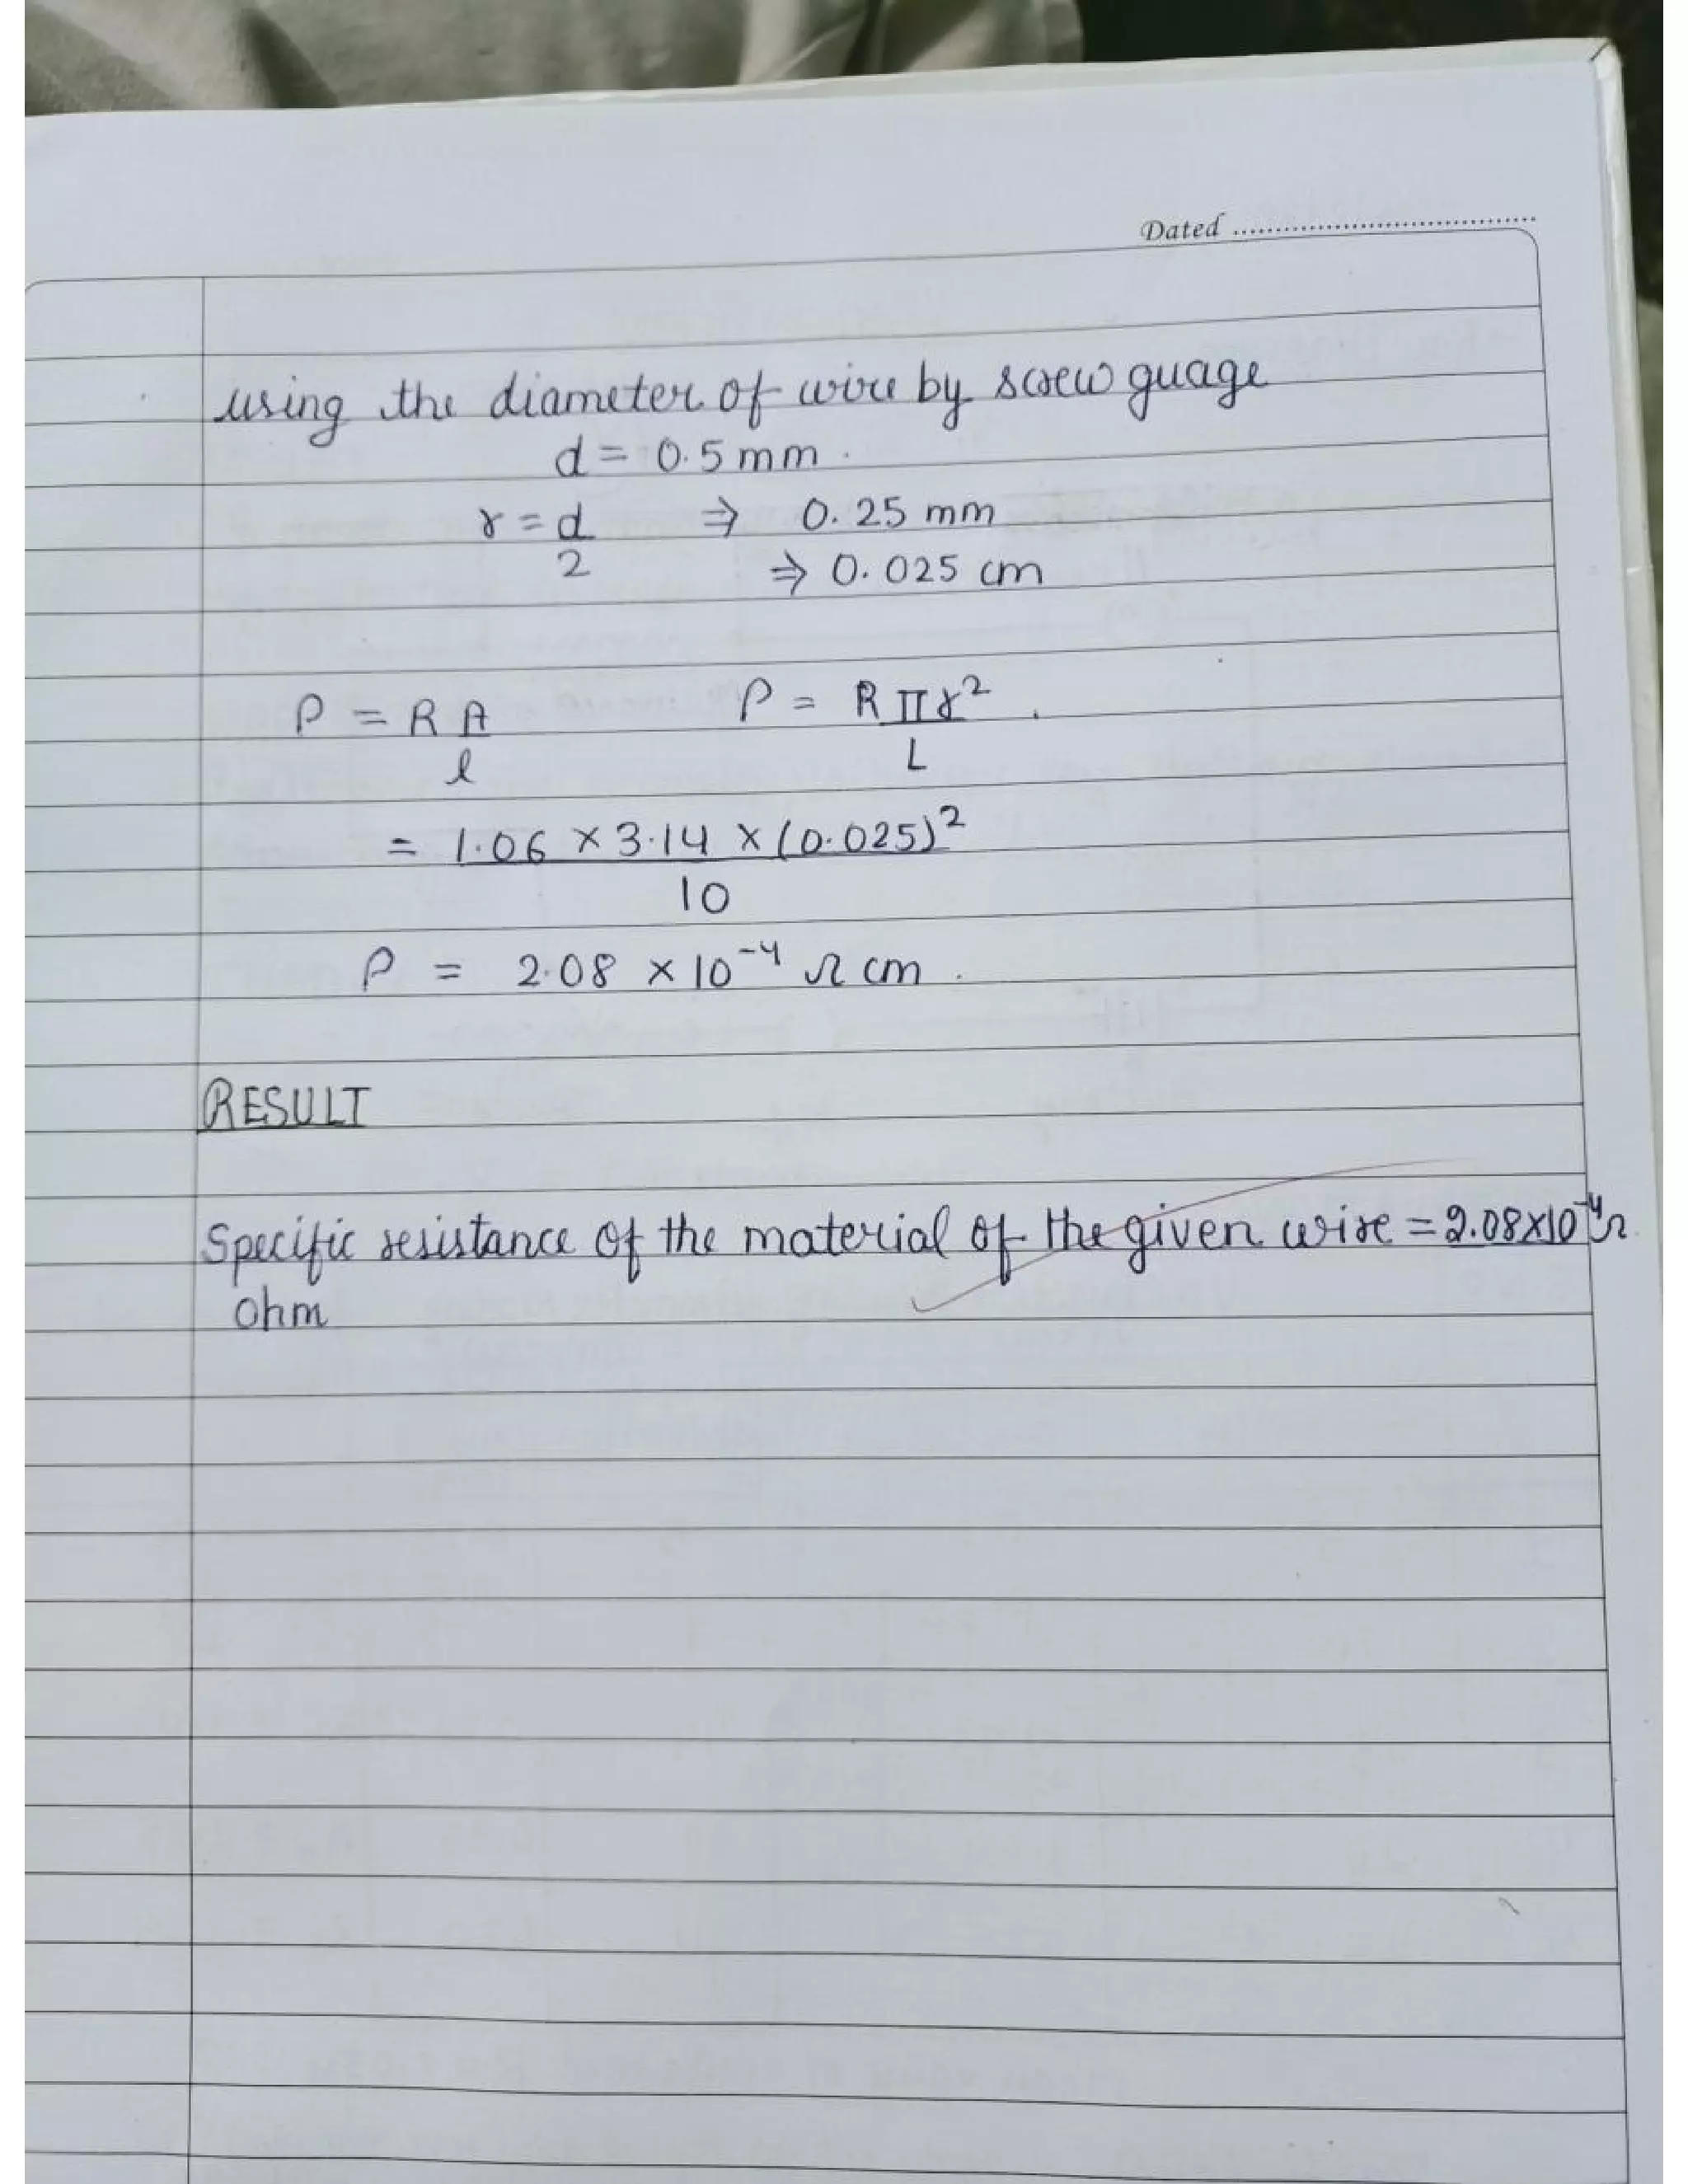 Dated
using the diameter of wire by screw guage
d = 0.5 mm
r = d/2 ⇒ 0.25 mm
⇒ 0.025 cm
ρ = R A/l ρ = R π r²/L
= 1.06 × 3.14 × (0.025)²/10
ρ = 2.08 × 10⁻⁴ Ω cm
RESULT
Specific resistance of the material of the given wire = 2.08×10⁻⁴ Ω
ohm